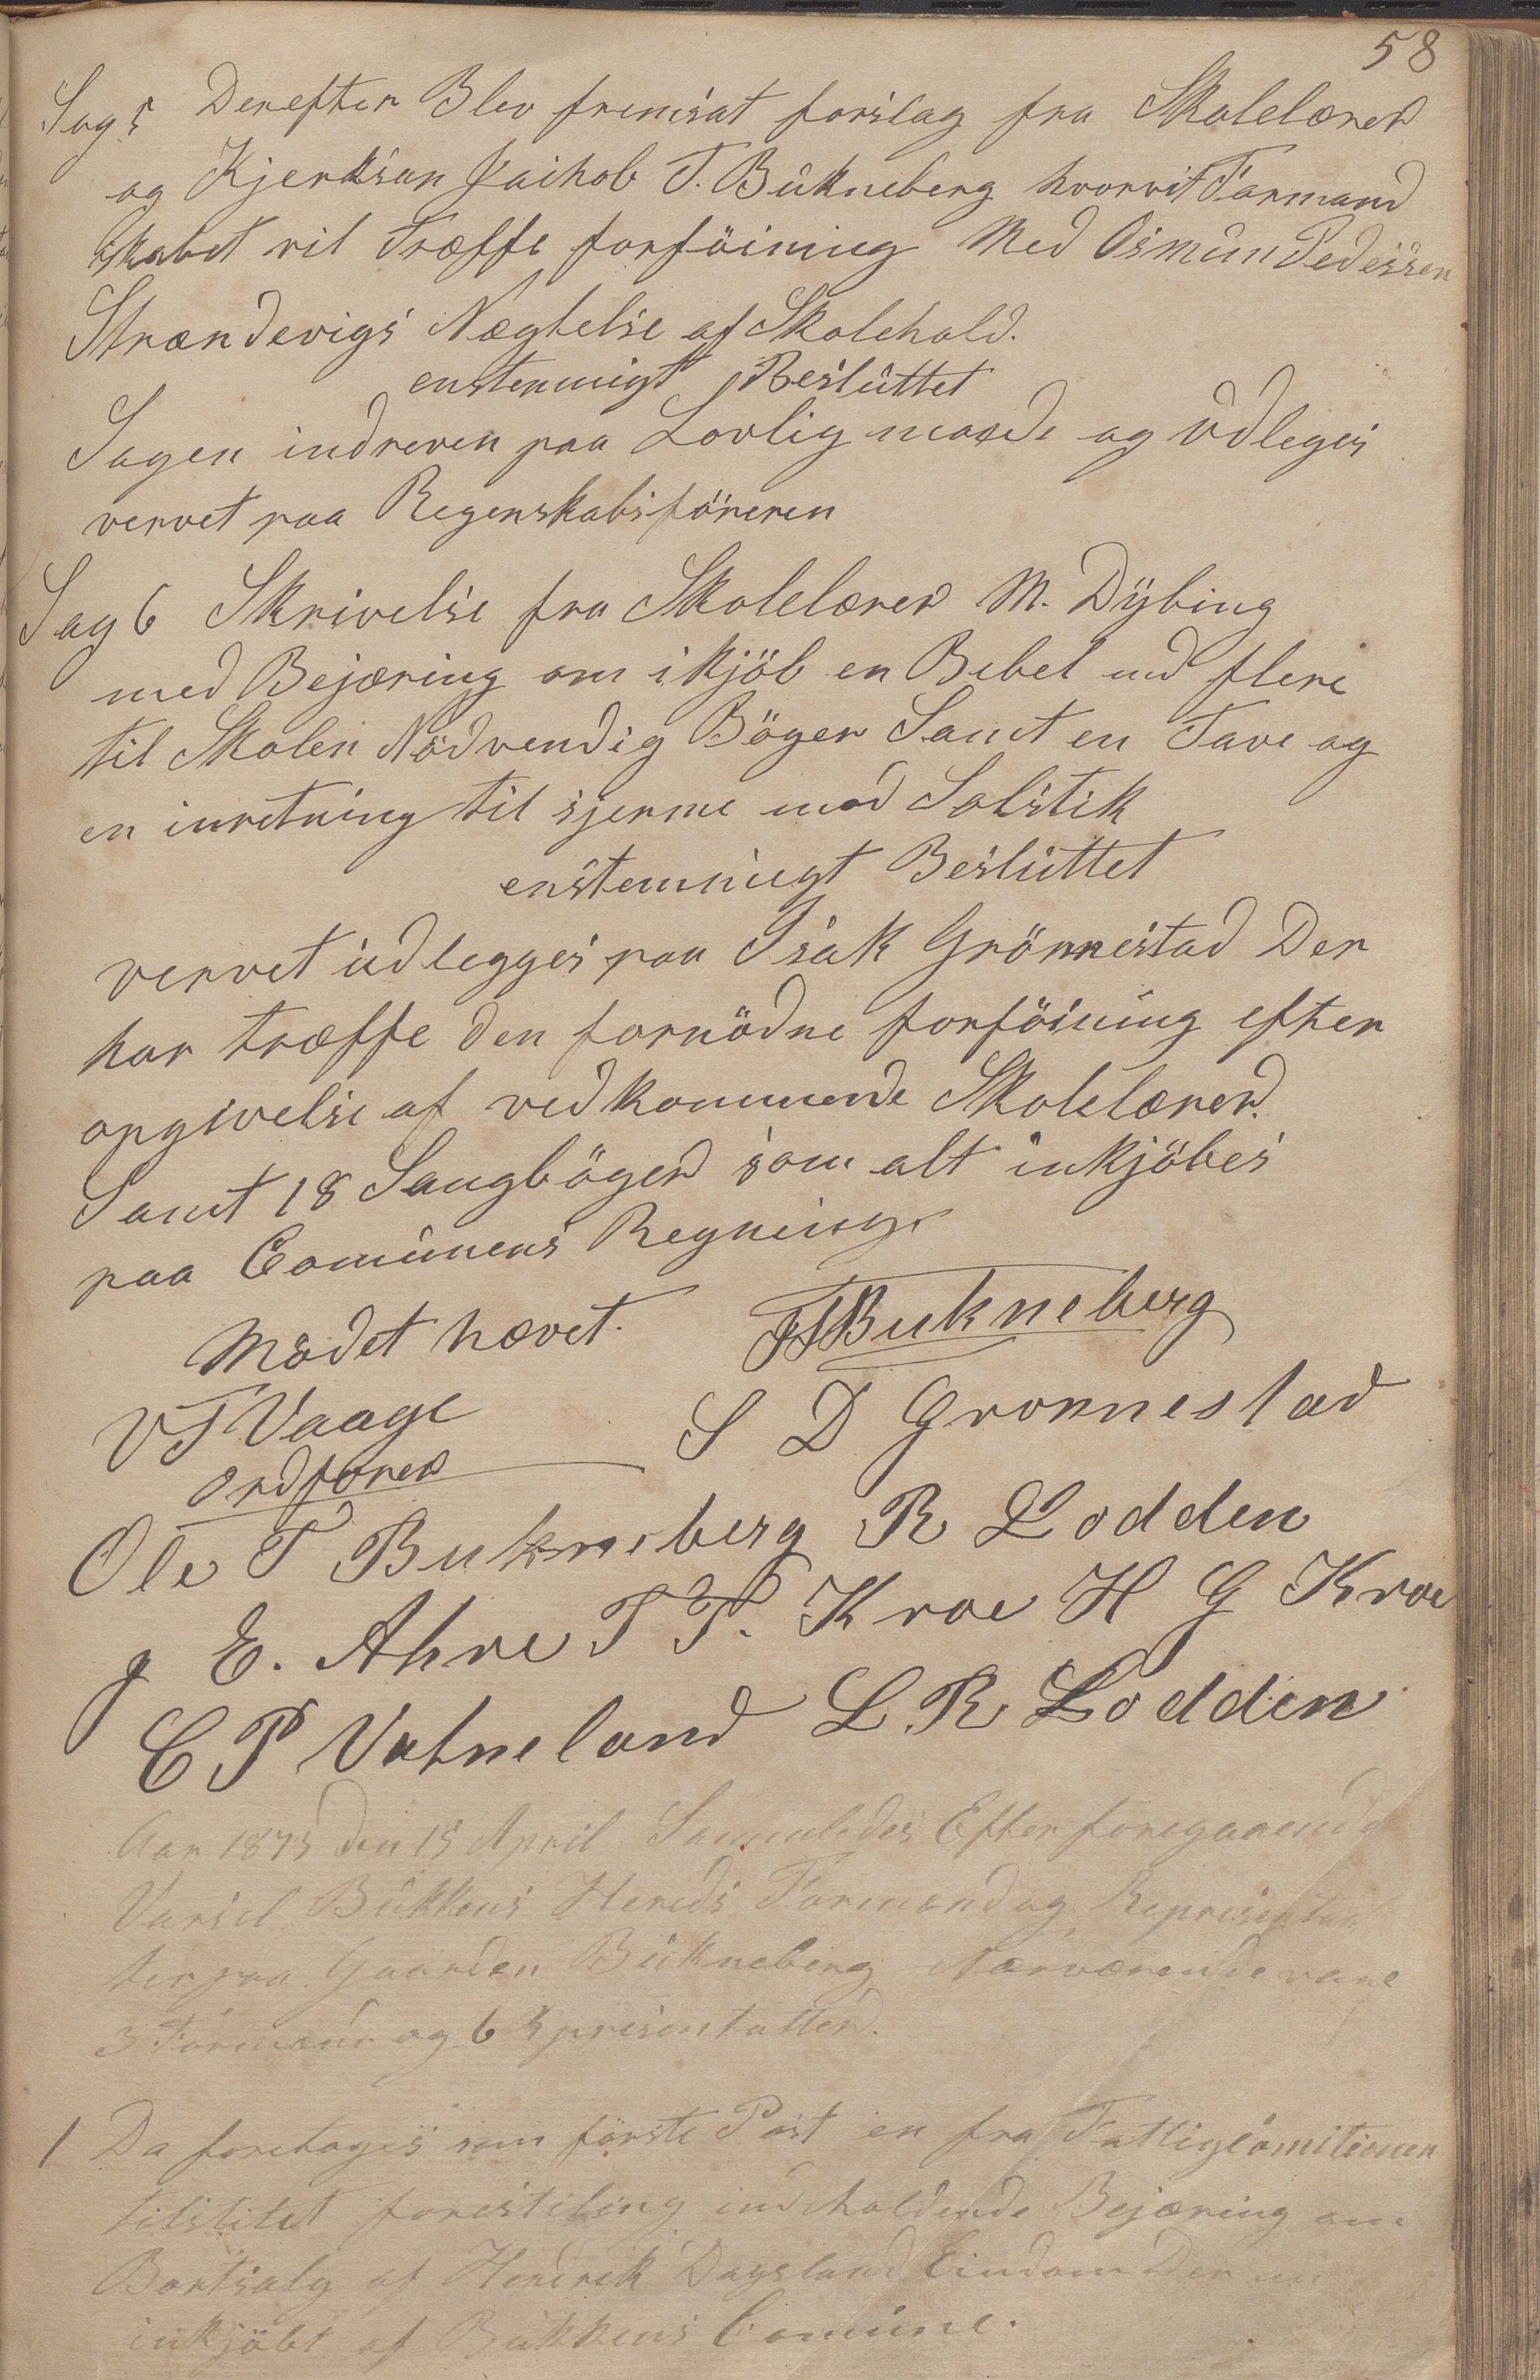 58
Sag 5 Derefter Blev fremsat forslag fra Skolelærer
og Kjerksan Jaihob T. Bukneberg hvorvit Formand
skabet vil træffe forföining Med Osmun Pedersen
Strandevigs Nægtelse af Skolehold.
enstemmigt Besluttet
Sagen indreven paa Lovlig maade og Udleges
vervet paa Regenskabsföreren
Sag 6 Skrivelse fra Skolelærer M. Dybing
med Bejæring om i kjöb en Bebel md flere
til Skolen Nödvendig Böger Samt en Tave og
en inretning til sjerme mod Solstik
enstemmigt Besluttet
vervet udlegges paa Isak Grönnestad Der
har træffe den fornödne forföining efter
opgivelse af vedkommende Skolelærer.
Samt 18 Sangböger som alt inkjöbes
paa Comunens Regning.
Mödet hævet. JTBukneberg
VTVaage S D Gronnestad
Ordforer
Ole T Bukneberg R Lodden
J E. Ahre T T. Kroe H G Kroe
C P Vatneland L. R Lodden
Aar 1875 den 15 April Sammledes Efter foregaaende
Varsel Bukkens Hereds Formænd og Represintan
ter paa Gaarden Bukneberg Nærværende vare
3 Formænd og 6 Rprisentatter.
1 Da foretoges som förste Post en fra Fattigcomitionen
tilstilet forestiling indholdende Bejæring om
Bortsalg af Hendrek Dagsland Eindom Der er
inkjöbt af Bukkens Comune.